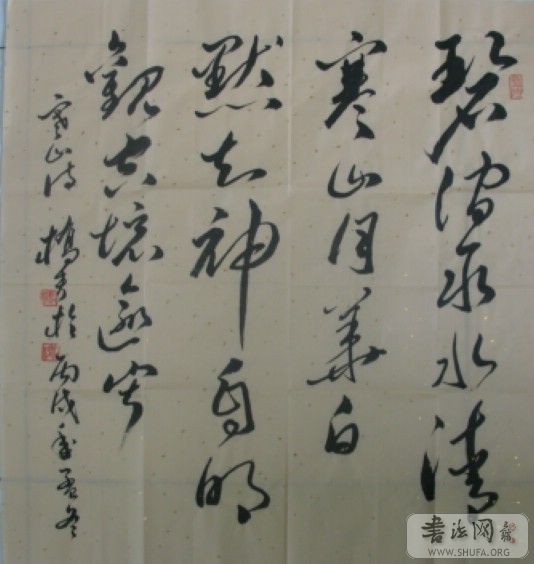 碧澗泉水清
寒山月華白
默知神自明
觀空境逾寂
寒山詩 於丙戌年孟冬
书法网
WWW.SHUFA.ORG